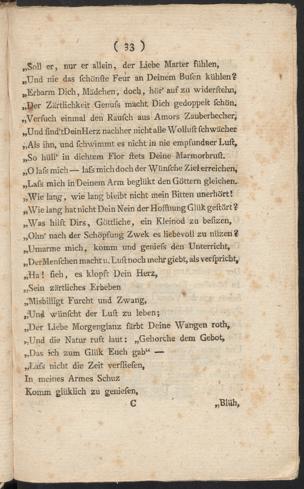 ( 33 )
„Soll er, nur er allein, der Liebe Marter fühlen,
„Und nie das schönste Feur an Deinem Busen kühlen?
„Erbarm Dich, Mädchen, doch, hör' auf zu widerstehn,
„Der Zärtlichkeit Genuss macht Dich gedoppelt schön.
„Versuch einmal den Rausch aus Amors Zauberbecher,
„Und find't Dein Herz nachher nicht alle Wollust schwächer
„Als ihn, und schwimmt es nicht in nie empfundner Lust,
„So hüll' in dichtem Flor stets Deine Marmorbrust.
„O lass mich — lass mich doch der Wünsche Ziel erreichen,
„Lass mich in Deinem Arm beglükt den Göttern gleichen.
„Wie lang, wie lang bleibt nicht mein Bitten unerhört!
„Wie lang hat nicht Dein Nein der Hoffnung Glük gestört?
„Was hilft Dirs, Göttliche, ein Kleinod zu besizen,
„Ohn' nach der Schöpfung Zwek es liebevoll zu nüzen?
„Umarme mich, komm und geniess den Unterricht,
„Der Menschen macht u. Lust noch mehr giebt, als verspricht,
„Ha! sieh, es klopft Dein Herz,
„Sein zärtliches Erbeben
„Misbilligt Furcht und Zwang,
„Und wünscht der Lust zu leben;
„Der Liebe Morgenglanz färbt Deine Wangen roth,
„Und die Natur ruft laut: „Gehorche dem Gebot,
„Das ich zum Glük Euch gab“ —
„Lass nicht die Zeit verfliesen,
In meines Armes Schuz
Komm glüklich zu geniesen,
C „Blüh,